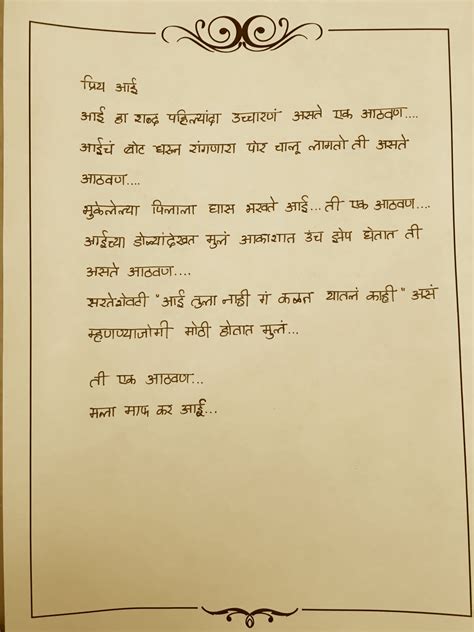 प्रिय आई
आई हा शब्द पहिल्यांदा उच्चारणं असते एक आठवण....
आईचं बोट धरून रांगणारा पोर चालू लागतो ती असते
आठवण....
भुकेलेल्या पिलाला घास भरवते आई... ती एक आठवण....
आईच्या डोळ्यांदेखत मुलं आकाशात उंच झेप घेतात ती
असते आठवण....
सरतेशेवटी "आई तुला नाही गं कळत यातलं काही" असं
म्हणण्याजोगी मोठी होतात मुलं...
ती एक आठवण...
मला माफ कर आई...